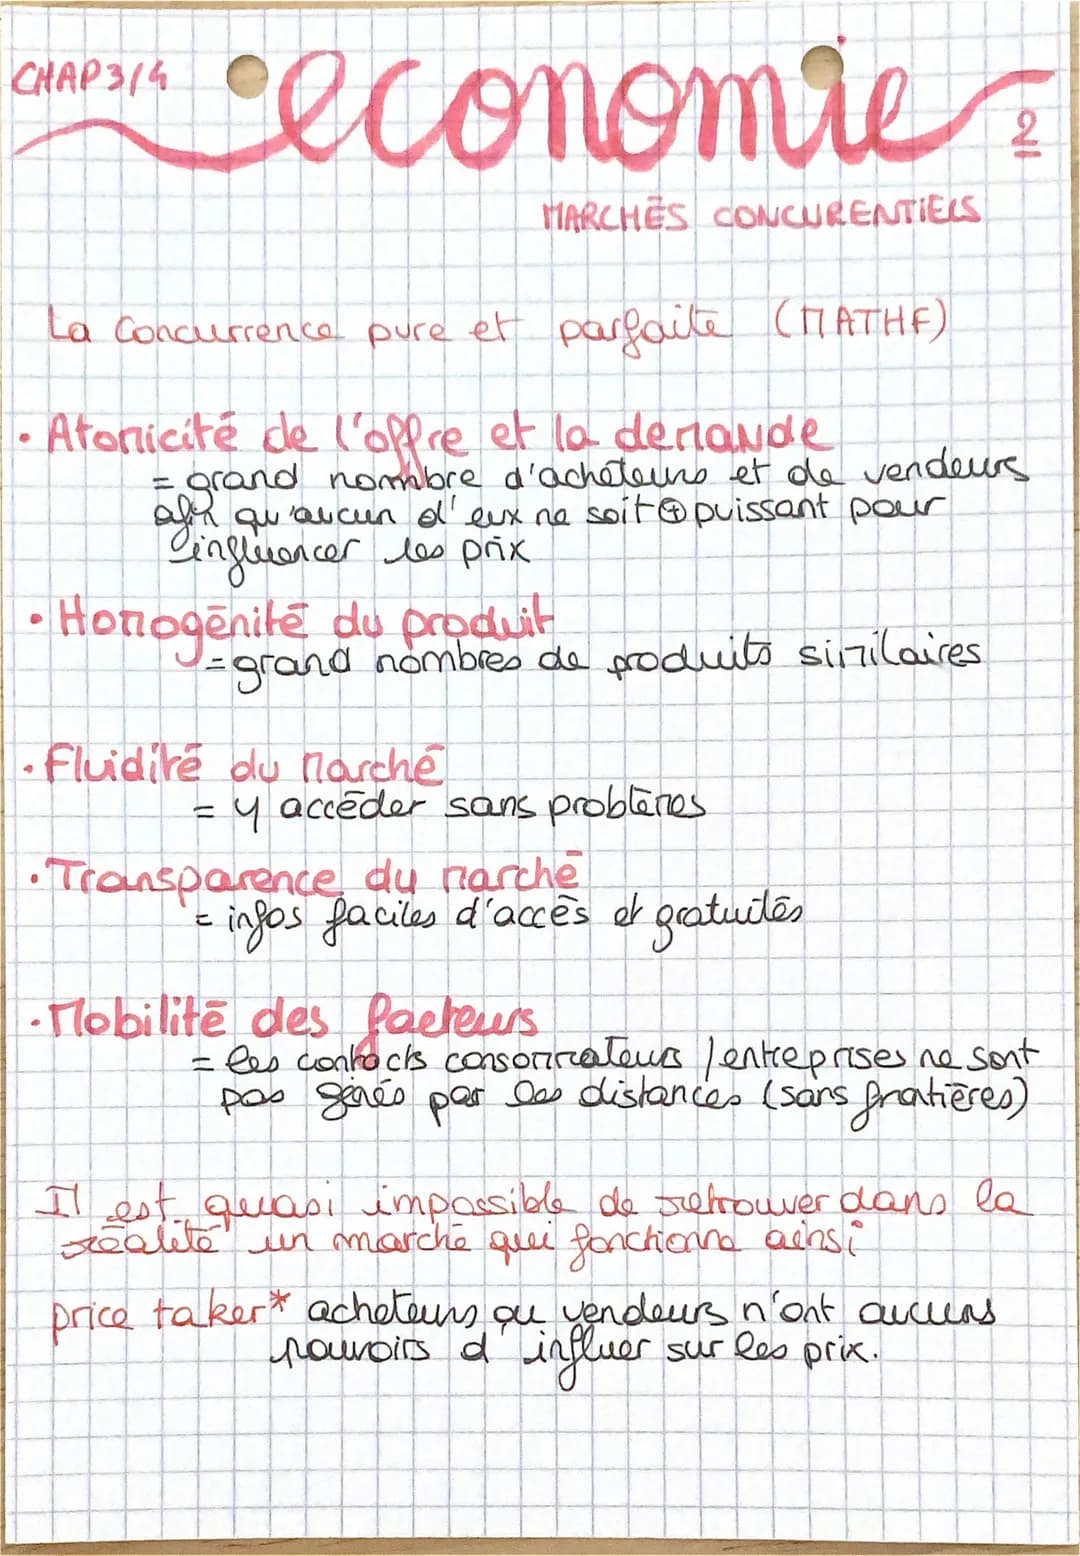 CHAP 3/4
economie
2
MARCHÉS CONCURENTIELS
La Concurrence pure et parfaite (MATHF)
• Atomicité de l'offre et la demande
= grand nombre d'acheteurs et de vendeurs
afin qu'aucun d'eux ne soit ⊕ puissant pour
influencer les prix
• Homogénité du produit
= grand nombres de produits similaires
• Fluidité du marché
= y accéder sans problèmes
• Transparence du marché
= infos faciles d'accès et gratuités
• Mobilité des facteurs
= les contacts consommateurs / entreprises ne sont
pas gênés par les distances (sans frontières)
Il est quasi impossible de retrouver dans la
réalité un marché qui fonctionne ainsi
price taker* acheteurs ou vendeurs n'ont aucuns
pouvoirs d'influer sur les prix.